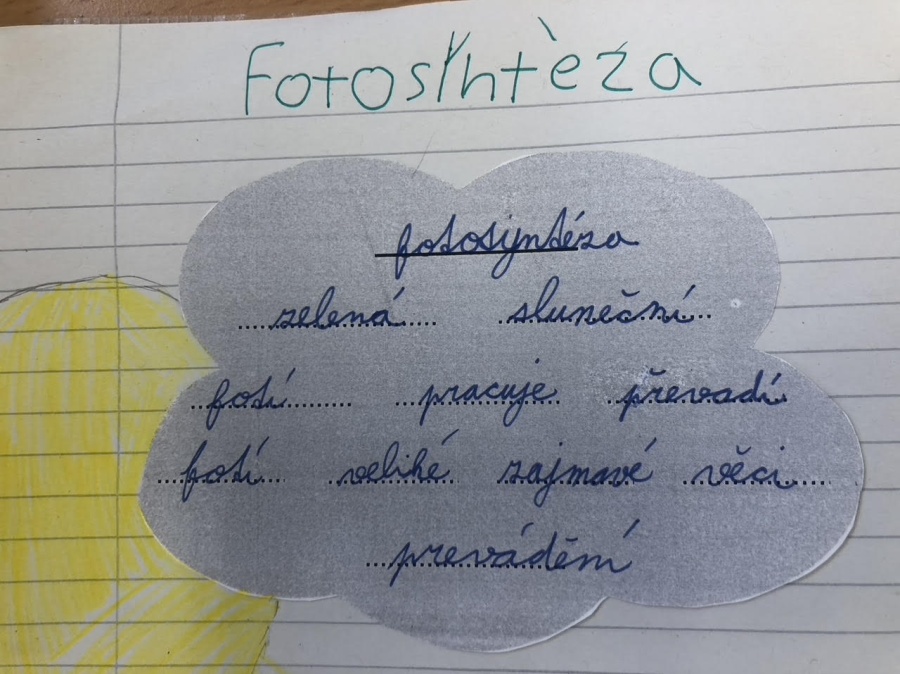 Fotosíntèza
fotosyntéza
zelená sluneční
fotí pracuje převadí
fotí veliké zajmavé věci
prevádění